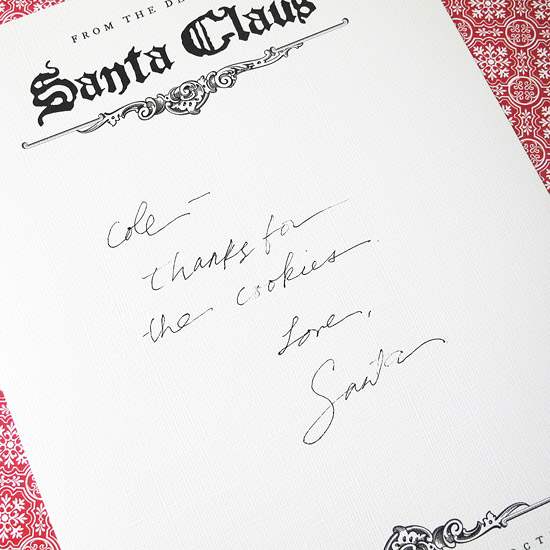 FROM THE
Santa Claus
Cole –
thanks for
the cookies.
Love,
Santa